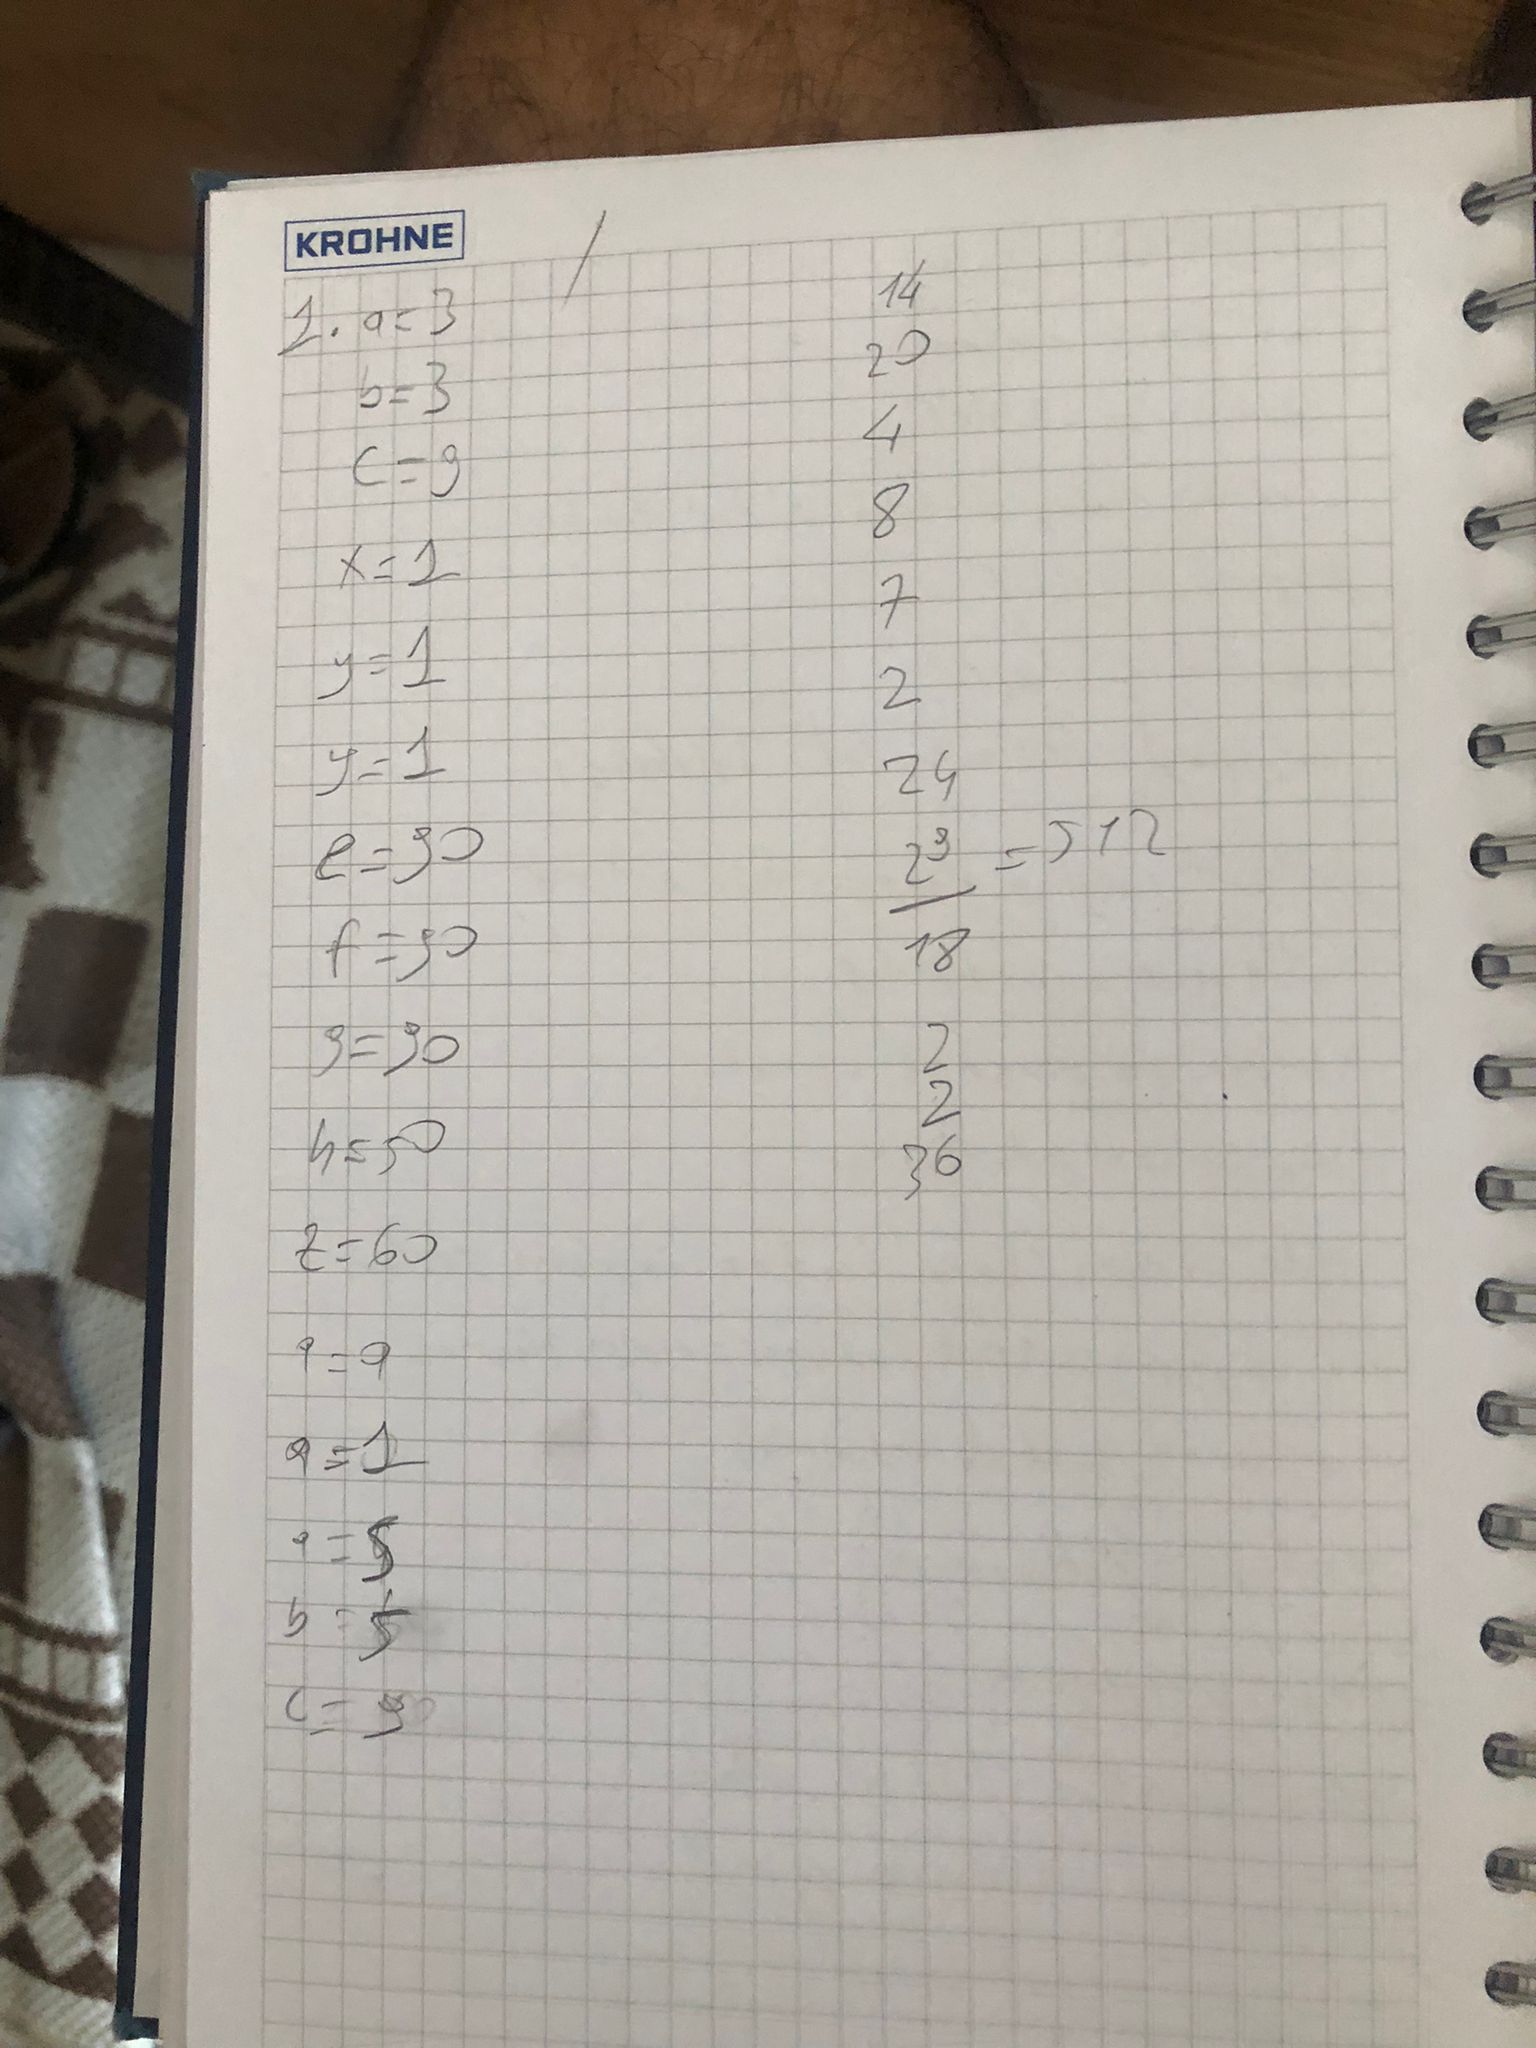 KROHNE
1. a=3
b=3
c=9
x=1
y=1
y=1
e=90
f=90
g=90
h=50
z=60
a=a
a=1
a=5
b=5
c=
14
20
4
8
7
2
24
2⁹ = 512
18
2
2
36